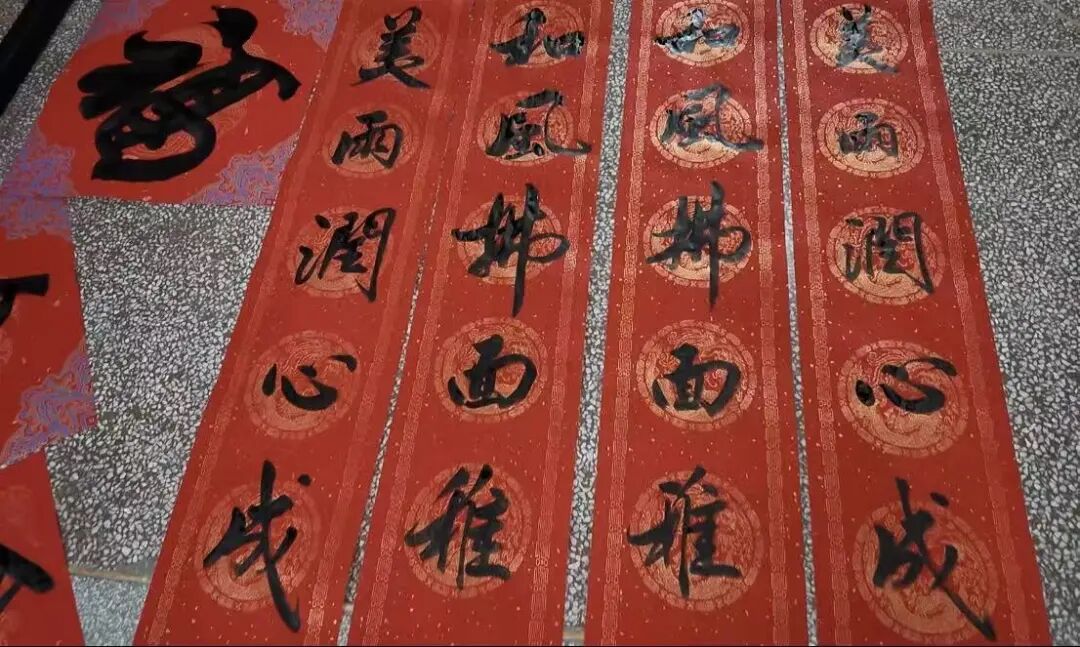 美雨潤心成
和風拂面稚
和風拂面稚
美雨潤心成